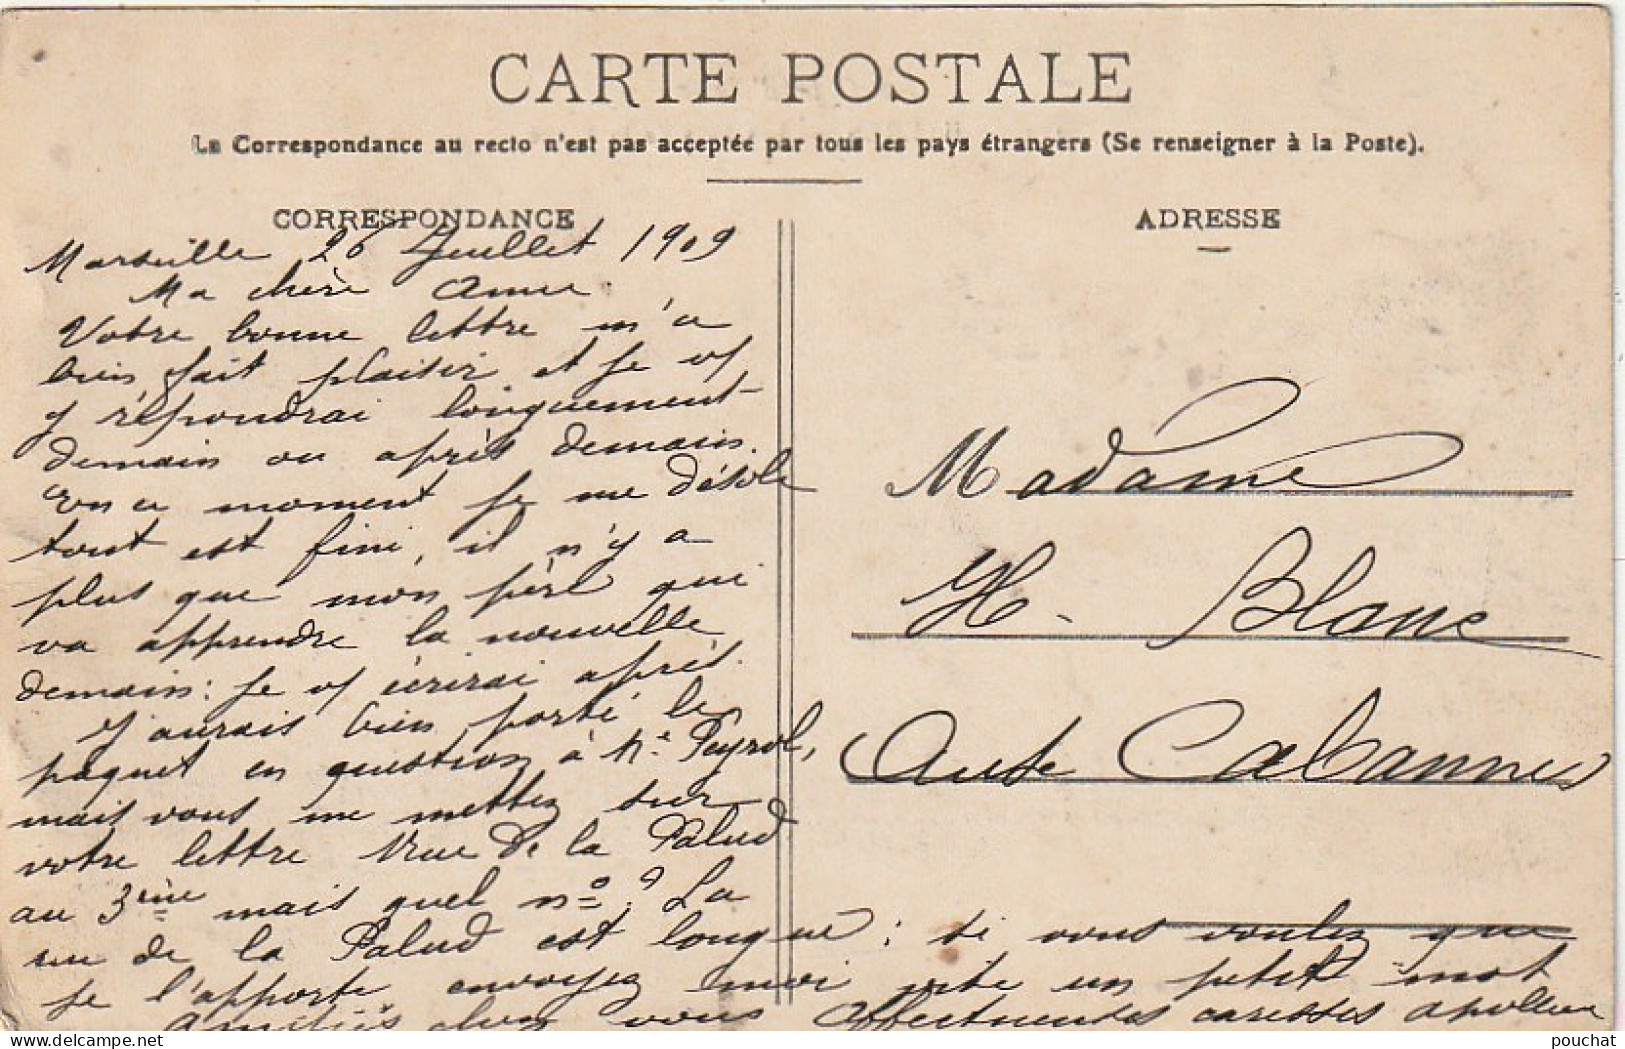 CARTE POSTALE
La Correspondance au recto n'est pas acceptée par tous les pays étrangers (Se renseigner à la Poste).
CORRESPONDANCE
Marseille 26 Juillet 1909
Ma chère Anna
Votre bonne lettre m'a
bien fait plaisir et je vs
y répondrai longuement
demain ou après demain.
En ce moment je me désole
tout est fini, il n'y a
plus que mon père qui
va apprendre la nouvelle
demain: je vs écrirai après.
J'aurais bien porté le
paquet en question à Me Peyrol,
mais vous me mettez sur
votre lettre rue de la Palud
au 3ème mais quel no? La
rue de la Palud est longue: si vous voulez que
je l'apporte envoyez moi vite un petit mot
Amitiés chez vous Affectueuses caresses
ADRESSE
Madame
H. Blanc
Aube Cabannes
pouchat